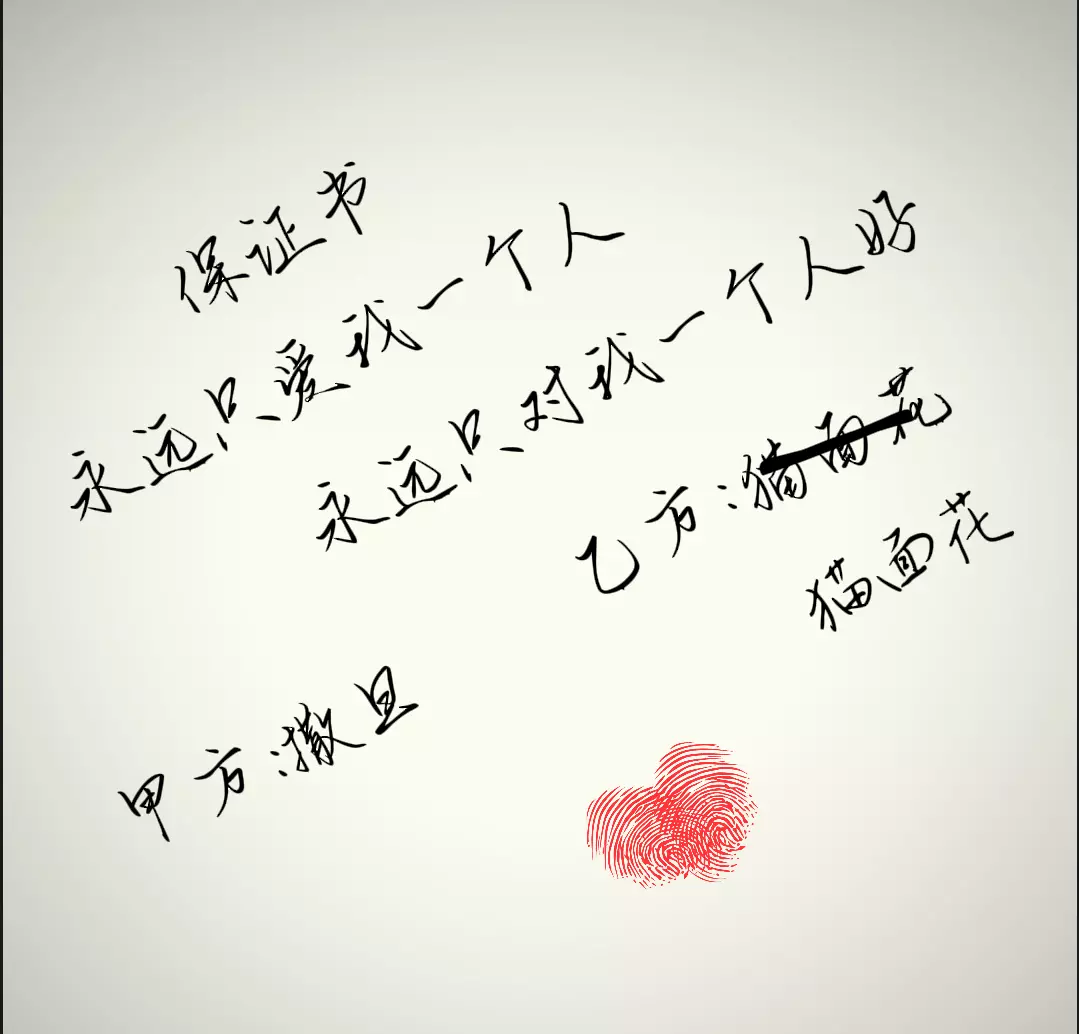 保证书
永远只爱我一个人
永远只对我一个人好
乙方:猫面花
猫面花
甲方:撒旦